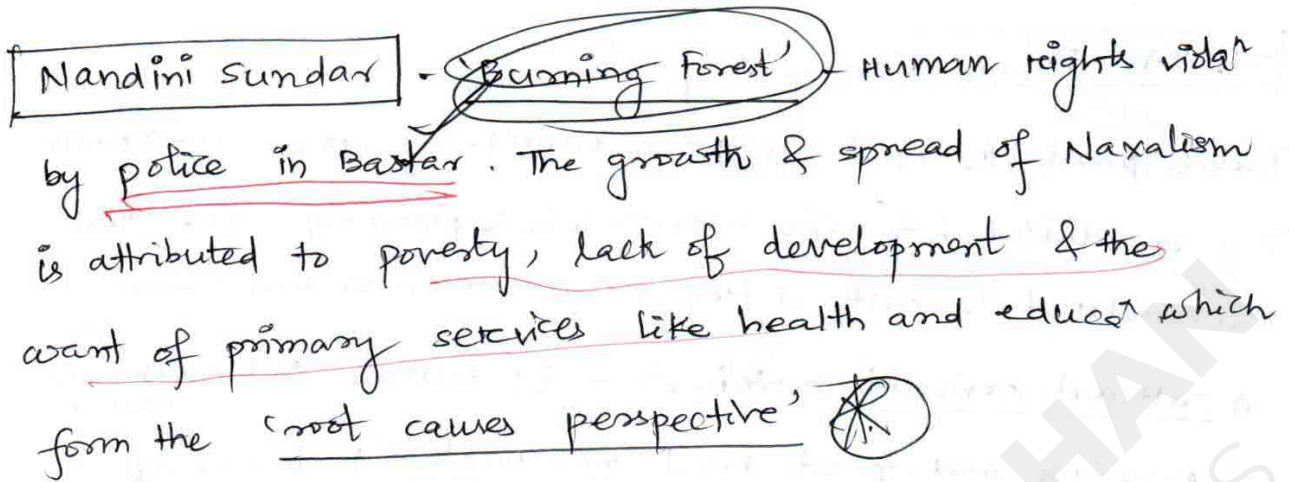 Nandini Sundar - 'Burning Forest' - Human rights violaⁿ
by police in Bastar. The growth & spread of Naxalism
is attributed to poverty, lack of development & the
want of primary services like health and educaⁿ which
form the 'root causes perspective'
HAN
S